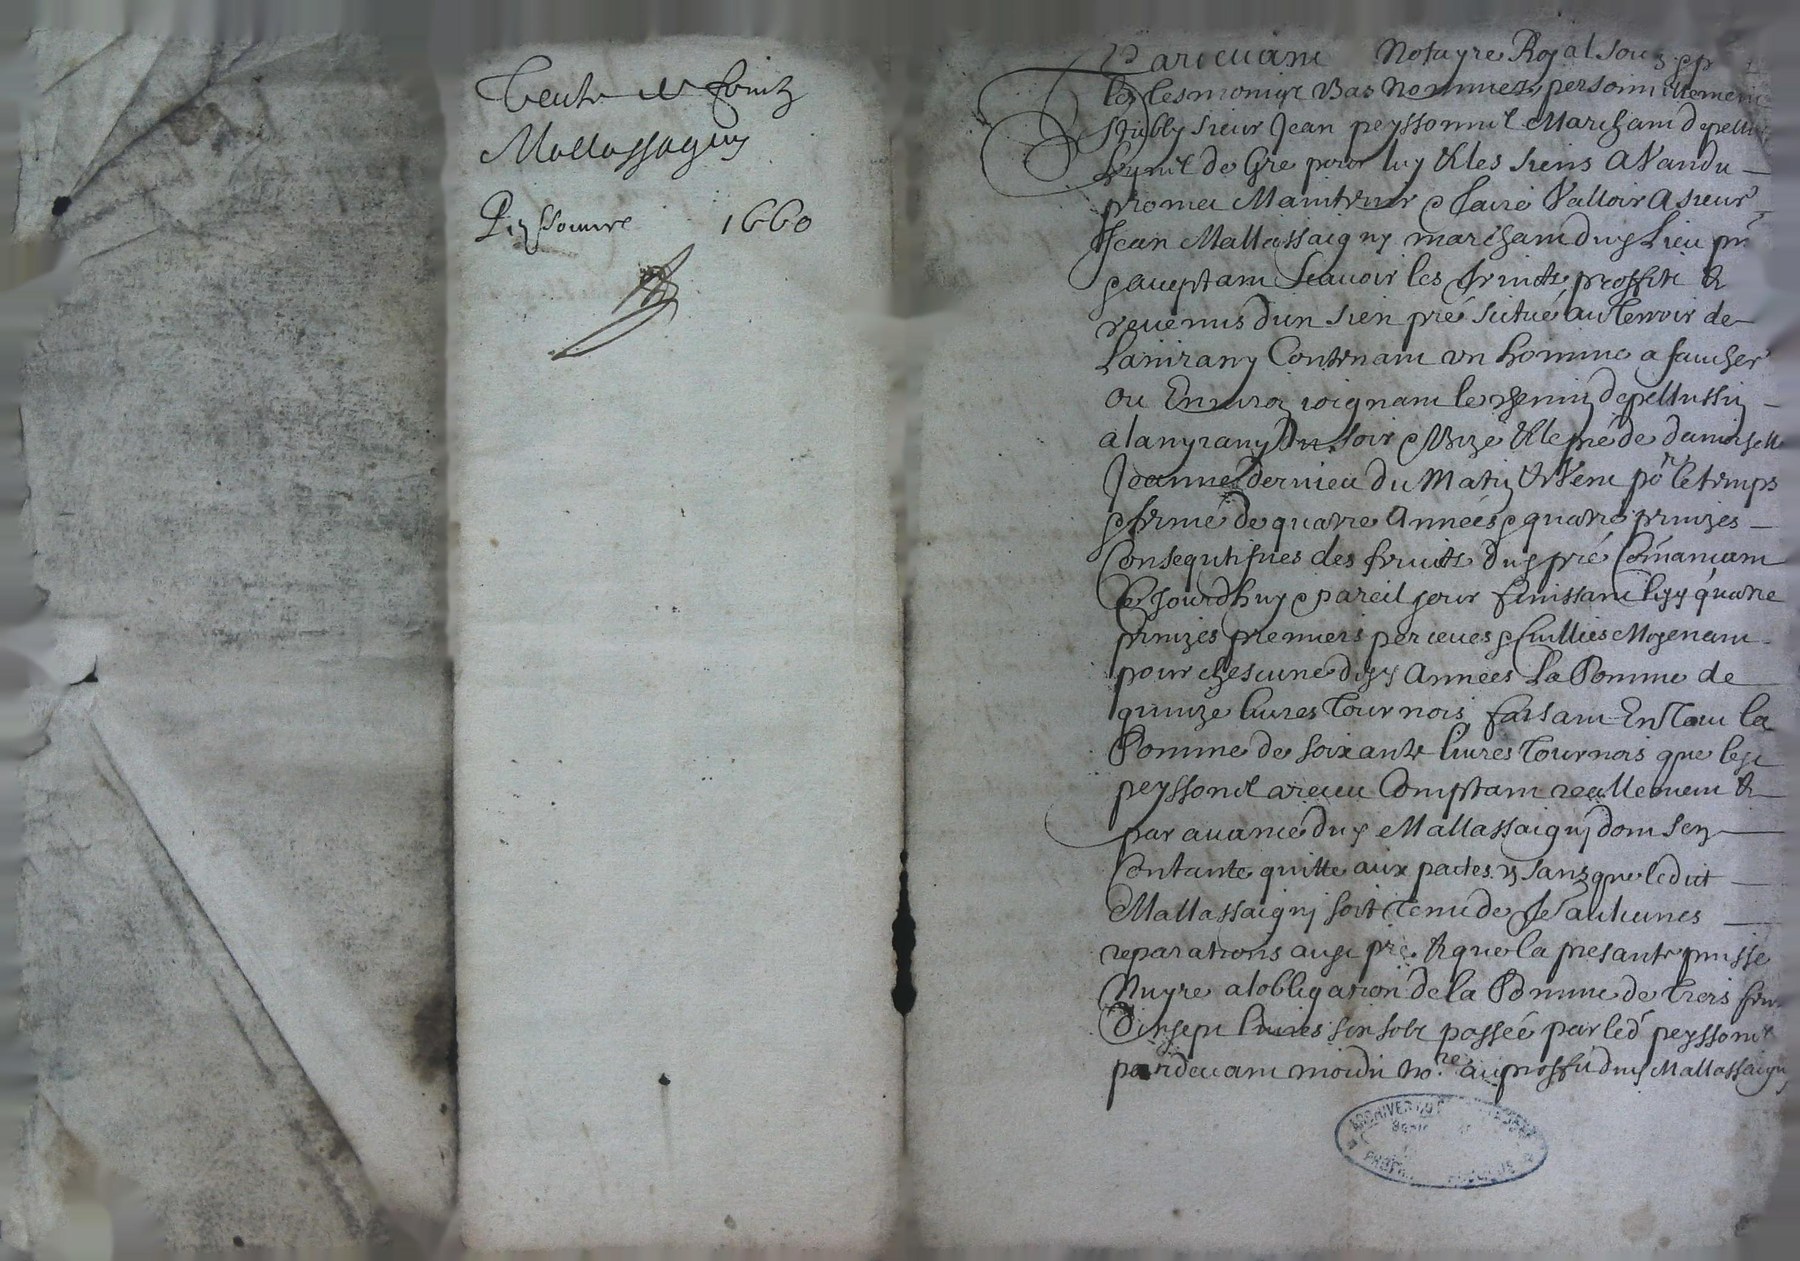 Vente de fruitz
Mallassagny
Peyssonnel 1660
Pardevant Notayre Royal soubz
les tesmoings bas nommez personnellement
estably sieur Jean peyssonnel Marchant de pellussi
lequel de Gre pour luy & les siens A Vandu
promet Maintenir & faire Valloir A sieur
Jean Mallassaigny marchant dud Lieu pnt
& aceptant Scavoir les fruits proffits &
revenus d'un sien pré scitué au Terroir de
Lanirany Contenant un homme a faucher
ou Environ joignant le chemin de pellussin
a lanyrany du soir & Bize & le pré de damoiselle
Joanne dernieu du Matin & Vent por le temps
& ferme de quatre Années & quatre prinzes
Consequtifves des fruitz dud pré Comancant
Ce Jourdhuy & pareil jour finissant lesd quatre
prinzes premiers perceues & Cuillies Moyenant
pour chescune desd Années La Somme de
quinze livres Tournois faisant En Tout la
Somme de soixante livres Tournois que led
peyssonel a receu Comptant reallement &
par avance dud Mallassaigny dont sen
Contante quitte aux pactes & sans que ledit
Mallassaigny soit Tenu de fe aulcunes
reparations aud pré & que la presante puisse
Nuyre a lobligation de la Somme de Trois
Dixsept livres six solz passée par led peyssonel
pardevant moidit nore au proffit dud Mallassaigny
ARCHIVES